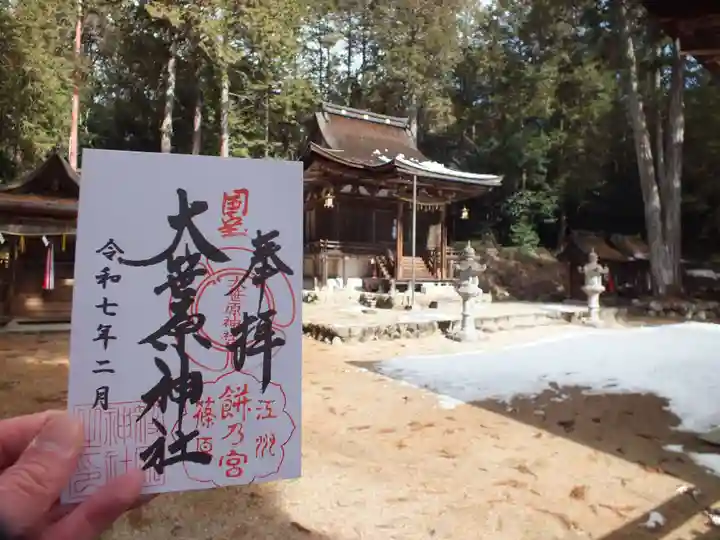 奉拝
国宝
大笹原神社
大笹原神社
江州
餅乃宮
篠原
令和七年二月